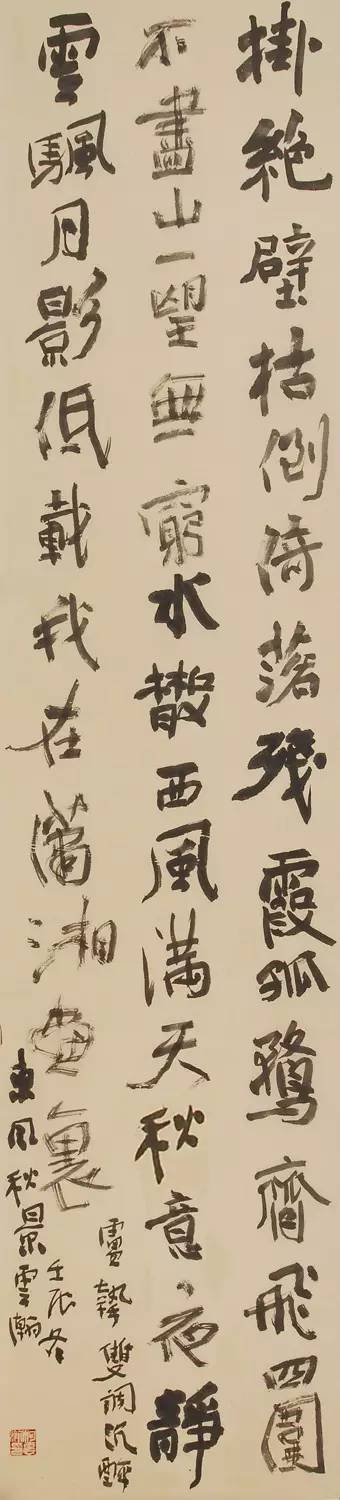 掛絕壁枯倒倚落殘霞孤鶩齊飛四圍
不盡山一望無窮水散西風滿天秋意夜靜
雲颿月影低載我在瀟湘畫裏
盧摯雙調沉醉
東風秋景雲瀚
壬辰冬